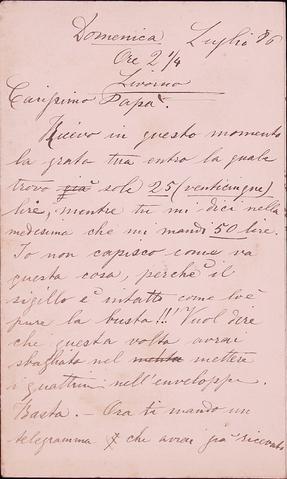 Domenica Luglio 86
Ore 2 1/4
Livorno
Carissimo Papà.
Ricevo in questo momento
la grata tua entro la quale
trovo già sole 25 (venticinque)
lire, mentre tu mi dici nella
medesima che mi mandi 50 lire.
Io non capisco come va
questa cosa, perchè il
sigillo è intatto come lo è
pure la busta!!! Vuol dire
che questa volta avrai
sbagliato nel mettere
i quattrini nell'enveloppe.
Basta. – Ora ti mando un
telegramma che avrai già ricevuto